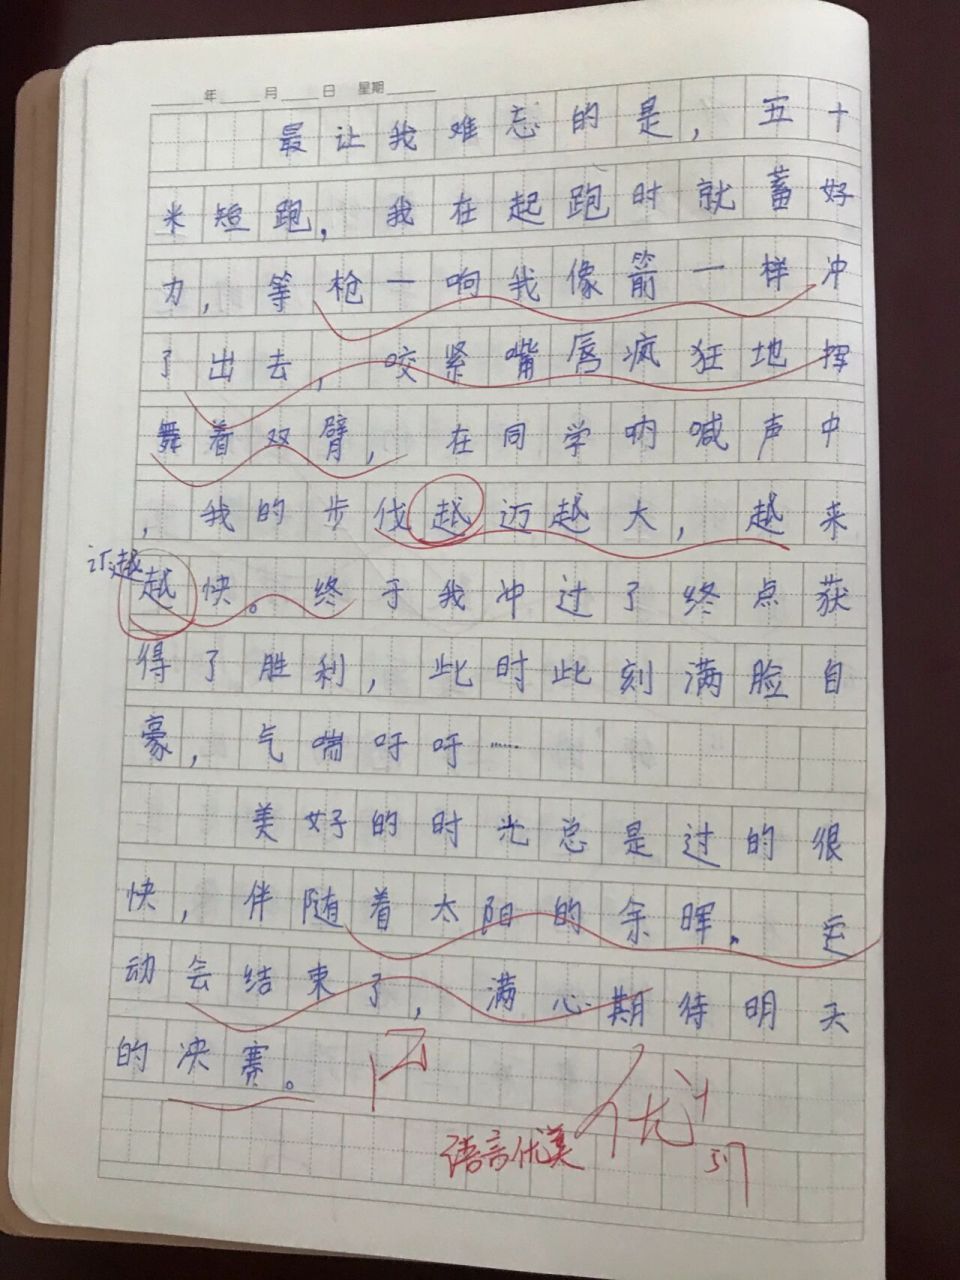 年 月 日 星期
最让我难忘的是，五十
米短跑，我在起跑时就蓄好
力，等枪一响我像箭一样冲
了出去，咬紧嘴唇疯狂地挥
舞着双臂，在同学呐喊声中
，我的步伐越迈越大，越来
订越
越快。终于我冲过了终点获
得了胜利，此时此刻满脸自
豪，气喘吁吁……
美好的时光总是过的很
快，伴随着太阳的余晖，运
动会结束了，满心期待明天
的决赛。
语言优美 优+